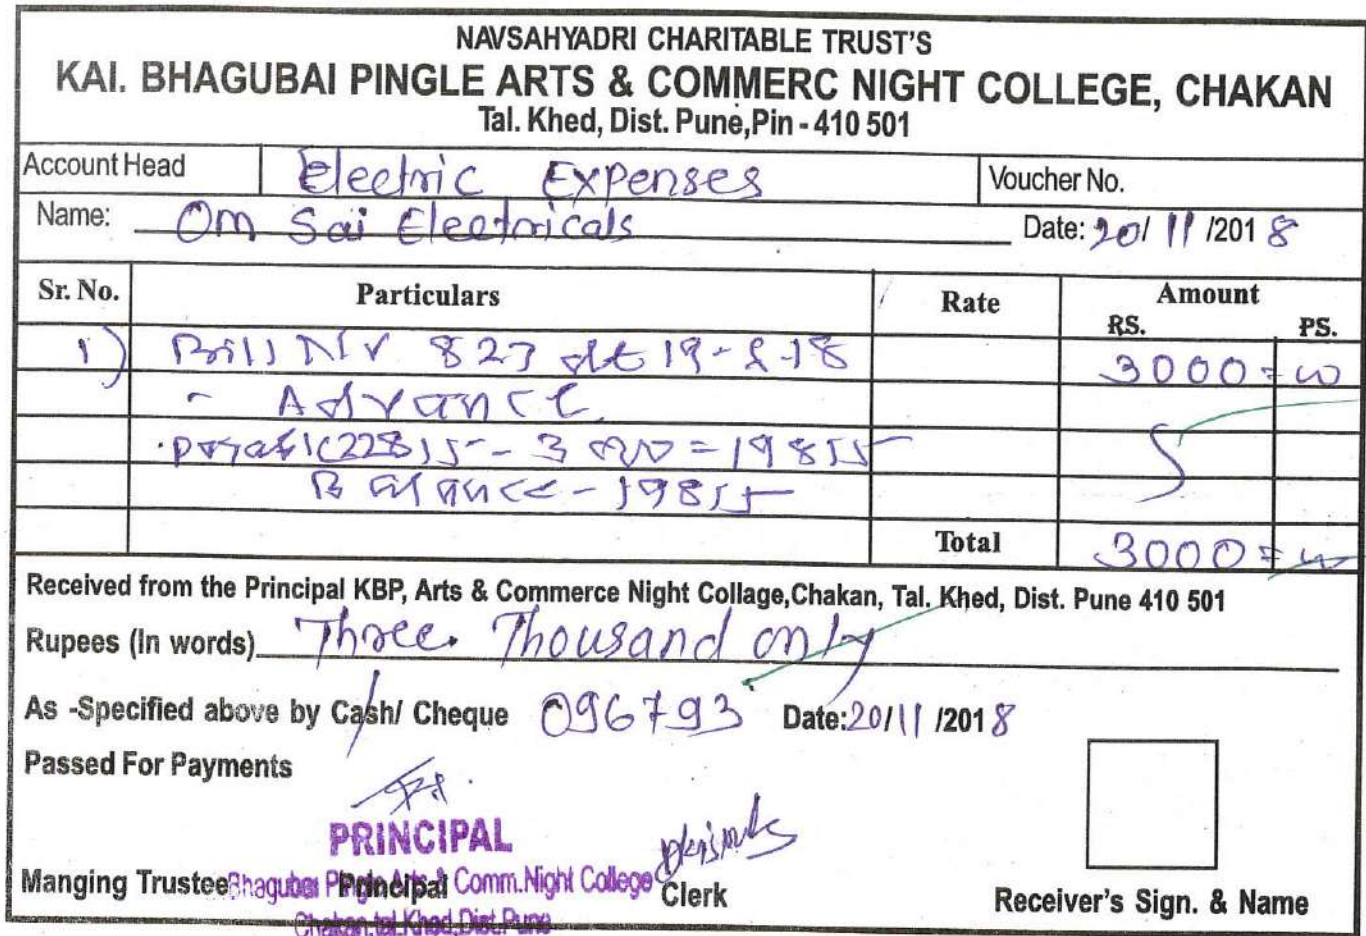 NAVSAHYADRI CHARITABLE TRUST'S
KAI. BHAGUBAI PINGLE ARTS & COMMERC NIGHT COLLEGE, CHAKAN
Tal. Khed, Dist. Pune,Pin - 410 501
Account Head Electric Expenses Voucher No.
Name: Om Sai Electricals Date: 20/ 11 /2018
Sr. No. Particulars Rate Amount
RS. PS.
1) Bill No 827 dt 19-8-18 3000=00
- Advance
22815 - 3000 = 19815
Balance - 19815
Total 3000=00
Received from the Principal KBP, Arts & Commerce Night Collage,Chakan, Tal. Khed, Dist. Pune 410 501
Rupees (In words) Three Thousand only
As -Specified above by Cash/ Cheque 096793 Date:20/11 /2018
Passed For Payments
PRINCIPAL
Manging Trustee Bhagubai Pingle Arts & Comm.Night College Principal Clerk Receiver's Sign. & Name
Chakan,tal.Khed,Dist.Pune